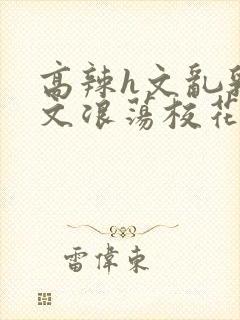 高辣h文乱乳
文浪荡校花
雷偉東